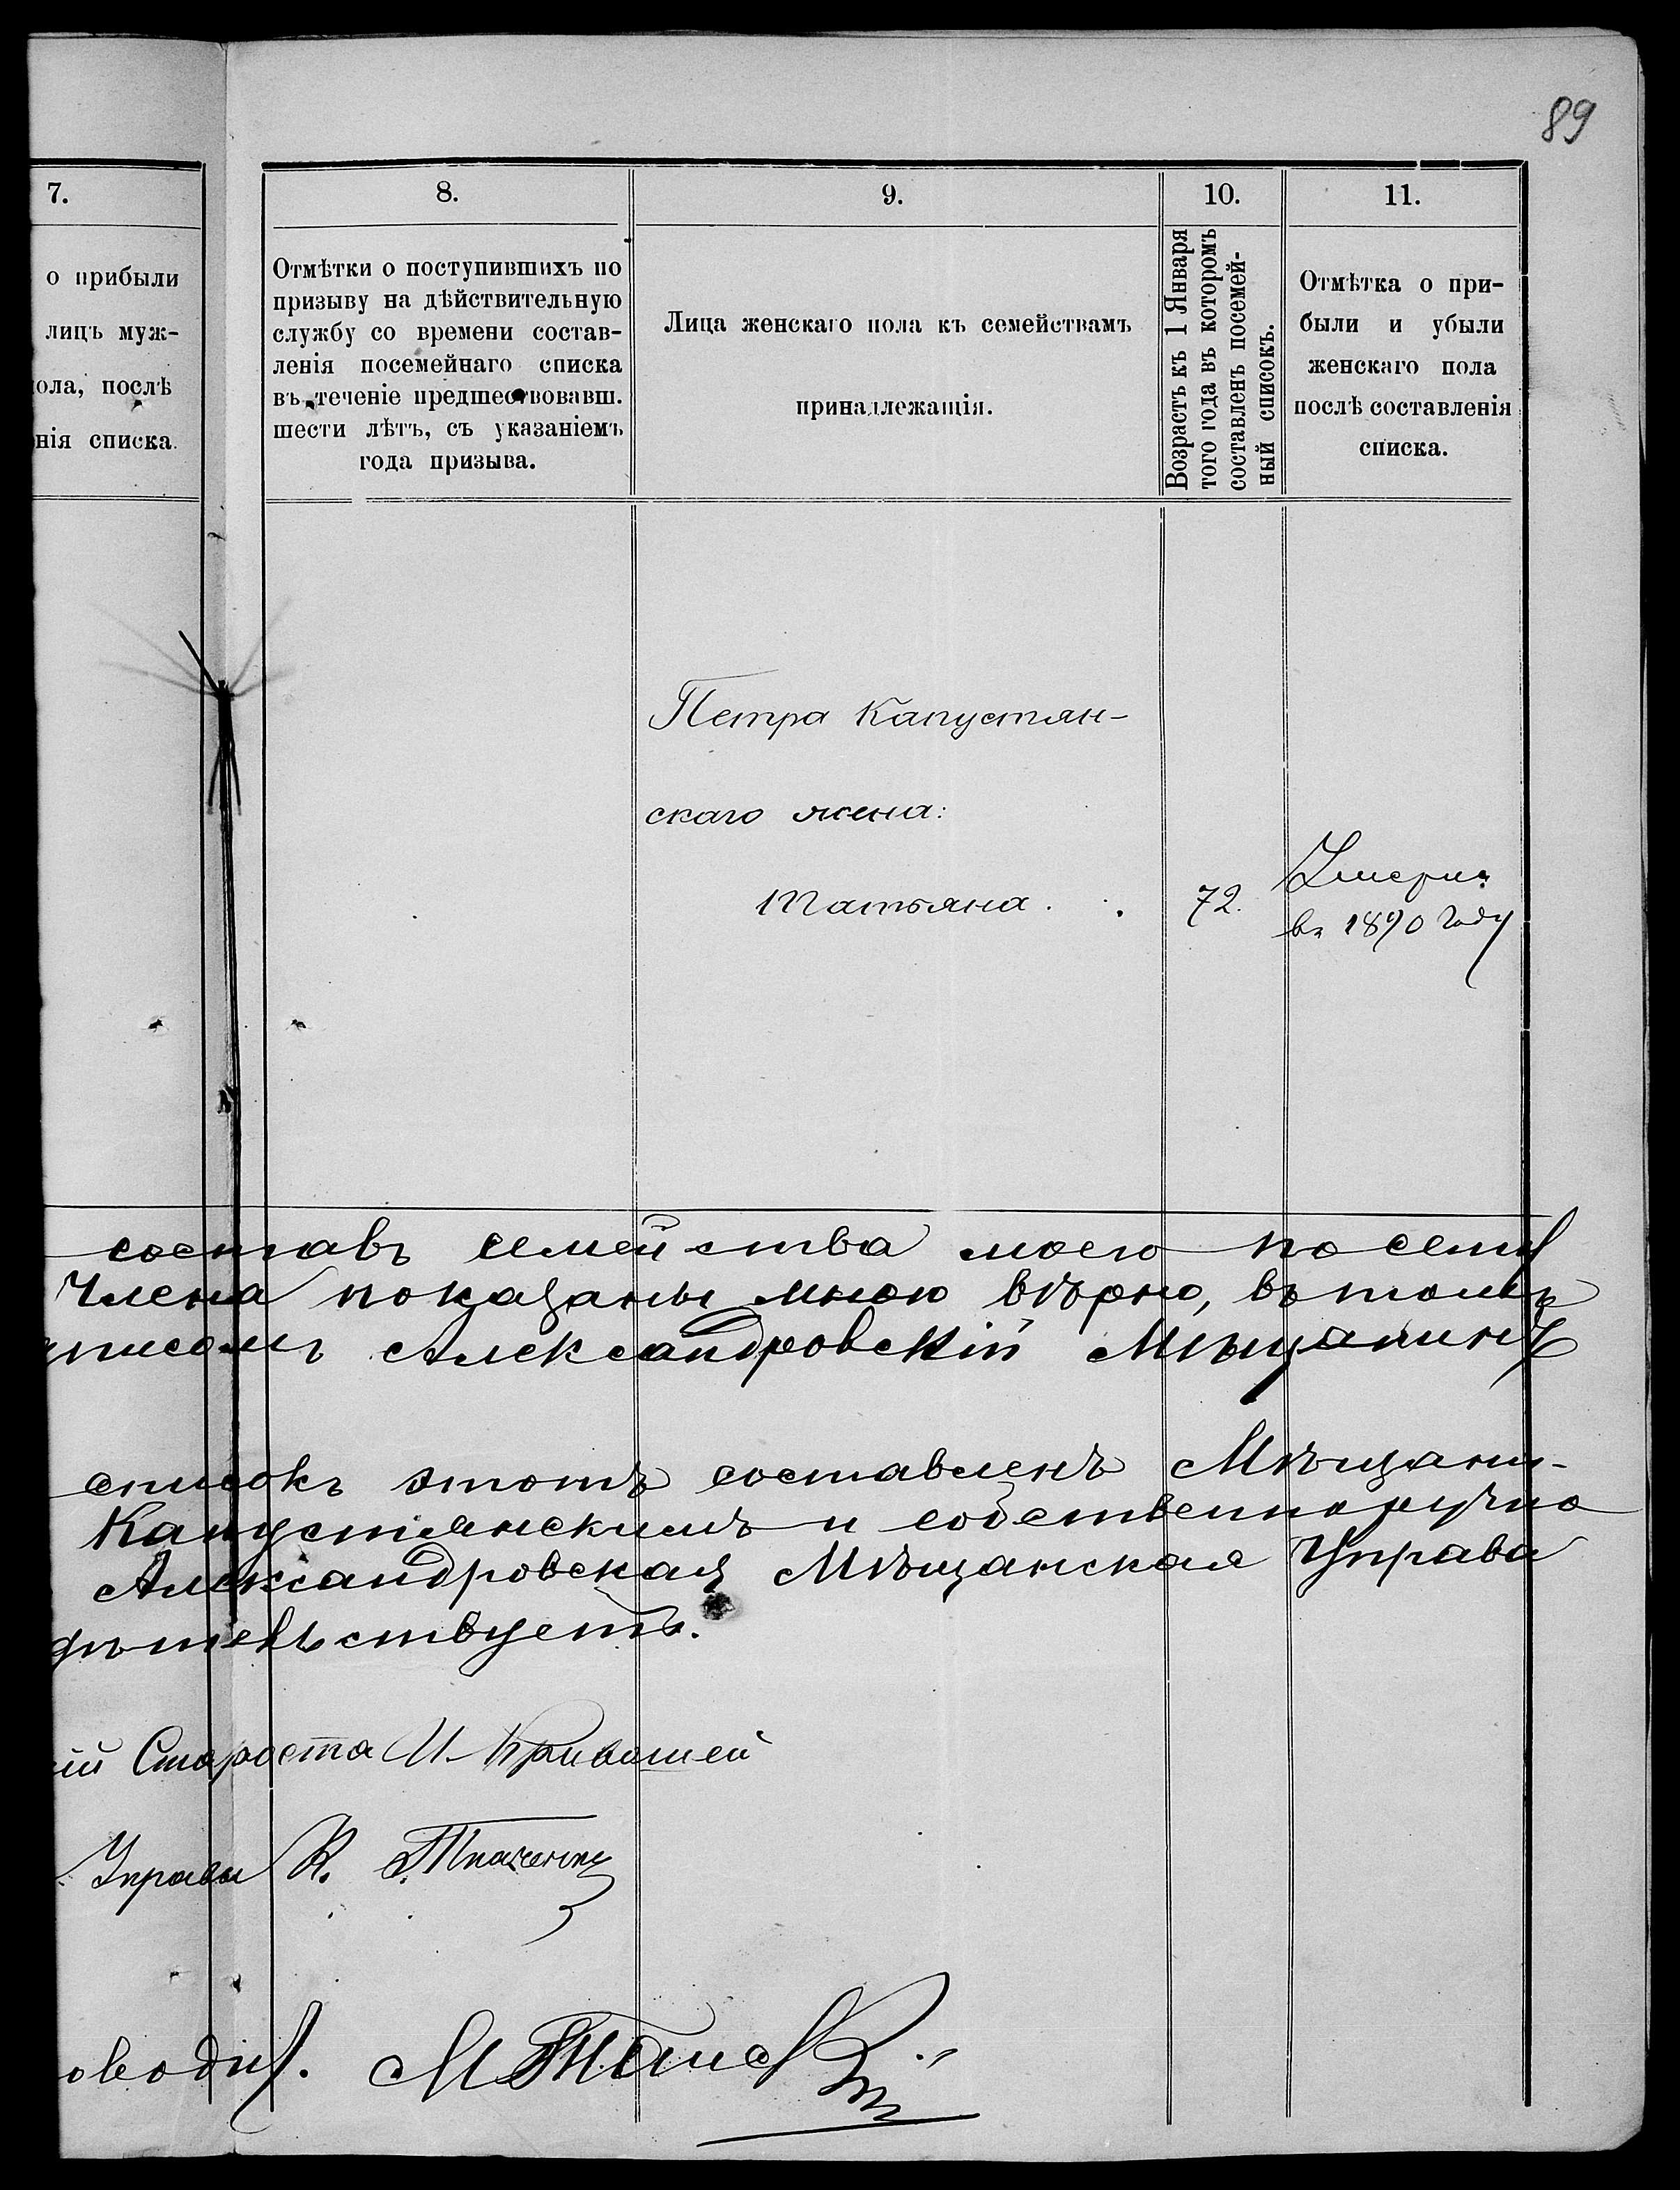 89
7.
о прибыли
лицъ муж-
пола, послѣ
нія списка.
8.
Отмѣтки о поступившихъ по
призыву на дѣйствительную
службу со времени состав-
ленія посемейнаго списка
въ теченіе предшествовавш.
шести лѣтъ, съ указаніемъ
года призыва.
9.
Лица женскаго пола къ семействамъ
принадлежащія.
10.
Возрастъ къ 1 Января
того года въ которомъ
составленъ посемей-
ный списокъ.
11.
Отмѣтка о при-
были и убыли
женскаго пола
послѣ составленія
списка.
Петра Капустян-
скаго жена:
Татьяна . .
72.
въ 1890 году
составъ семейства моего по сему
члена показаны мною вѣрно, въ томъ
Александровскій Мѣщанинъ
списокъ этотъ составленъ Мѣщани-
Капустянскимъ и собственноручно
Александровская Мѣщанская Управа
дѣтельствуетъ.
ій Староста И. Кривошей
Управы К. Ткаченко
оводи.